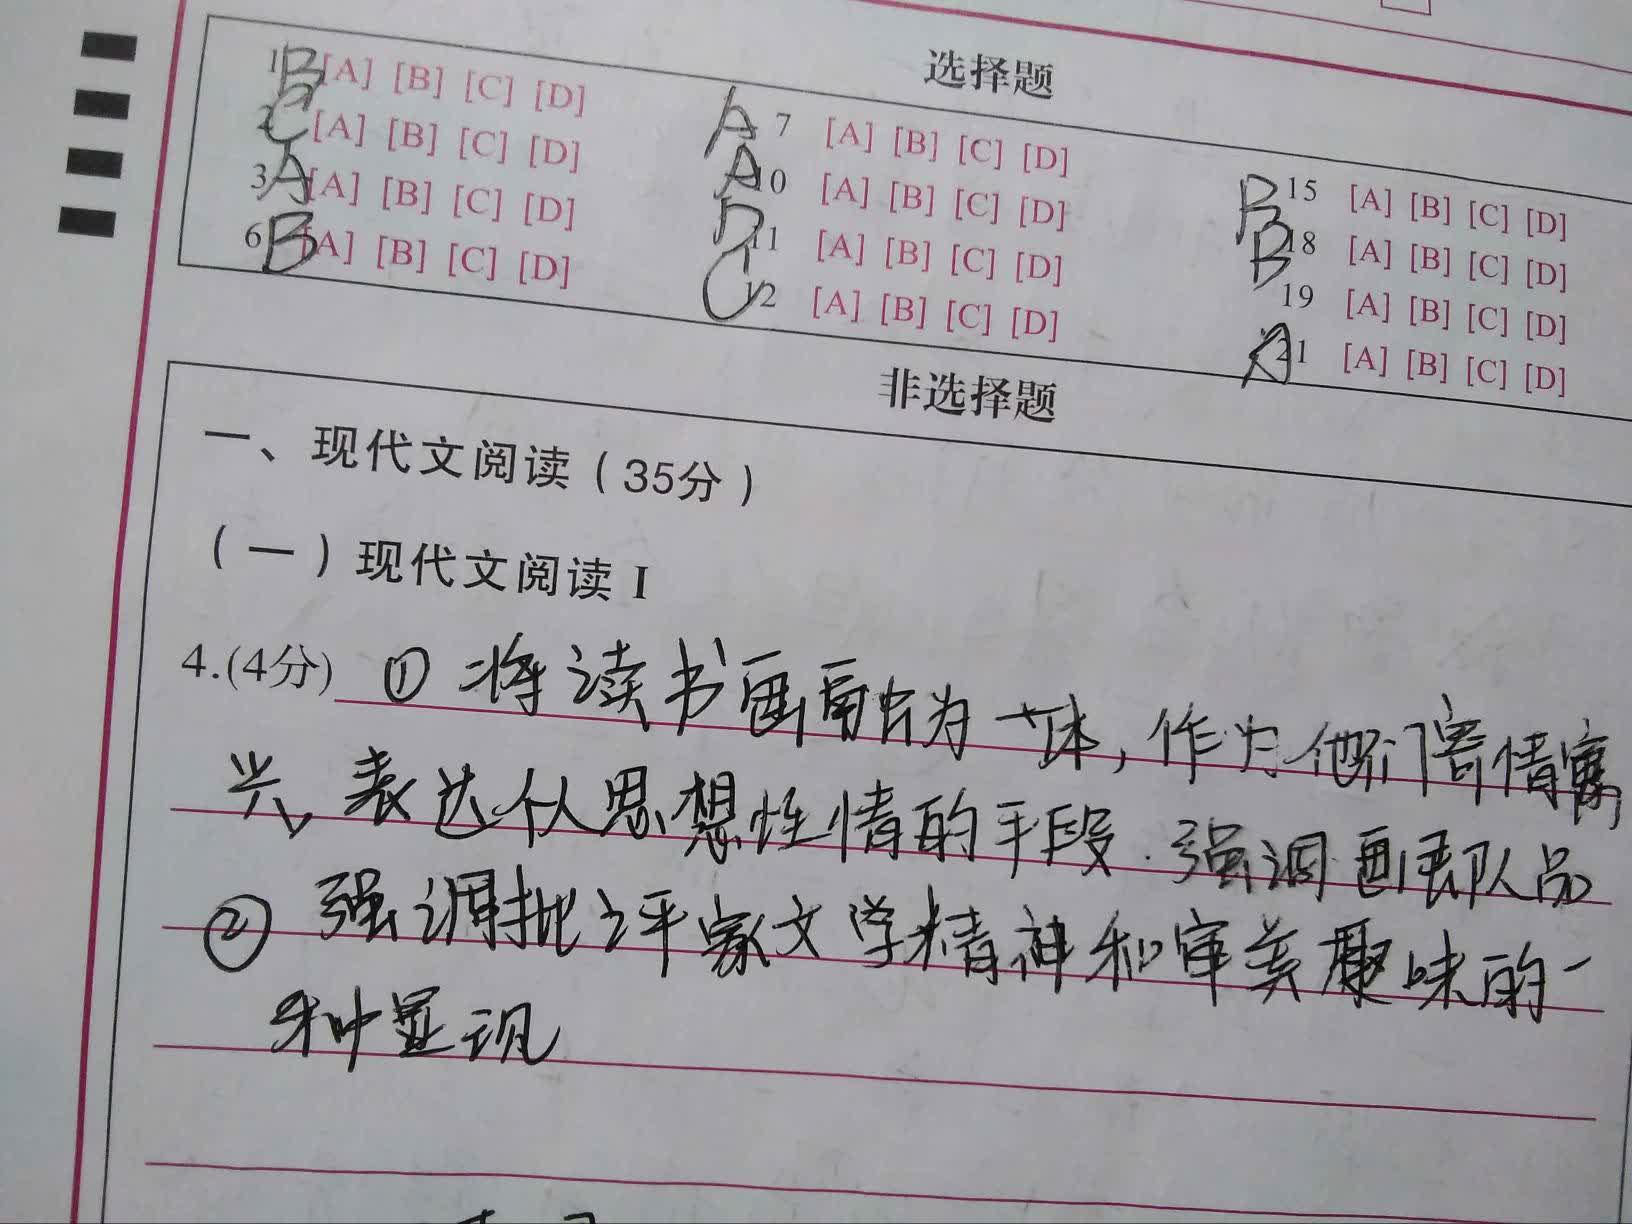 选择题
1 B [A] [B] [C] [D]
2 C [A] [B] [C] [D]
3 A [A] [B] [C] [D]
6 B [A] [B] [C] [D]
A 7 [A] [B] [C] [D]
A 10 [A] [B] [C] [D]
D 11 [A] [B] [C] [D]
C 12 [A] [B] [C] [D]
B 15 [A] [B] [C] [D]
B 18 [A] [B] [C] [D]
19 [A] [B] [C] [D]
21 [A] [B] [C] [D]
非选择题
一、现代文阅读（35分）
（一）现代文阅读 I
4.(4分) ① 将读书画融为一体，作为他们寄情寓
兴、表达个人思想性情的手段.强调画品即人品
② 强调批评家文学精神和审美趣味的一
种显现